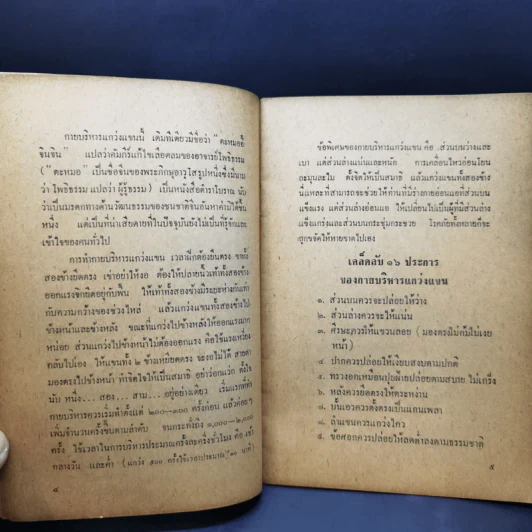 กายบริหารแกว่งแขนนี้ เดิมทีเดียวมีชื่อว่า "ตะหมออี้
จินจิน" แปลว่าคัมภีร์แก้ไขเลือดลมของอาจารย์โพธิธรรม
("ตะหมอ" เป็นชื่อจีนของพระภิกษุอาวุโสรูปหนึ่งซึ่งมีนาม
ว่า โพธิธรรม แปลว่า ผู้รู้ธรรม) เป็นหนังสือตำราโบราณ นับ
ว่าเป็นมรดกทางด้านวัฒนธรรมของชนชาติจีนอันหาค่ามิได้ชิ้น
หนึ่ง แต่เป็นที่น่าเสียดายที่ในปัจจุบันยังไม่เป็นที่รู้จักและ
เข้าใจของคนทั่วไป
การทำกายบริหารแกว่งแขน เวลาฝึกต้องยืนตรง ขาทั้ง
สองข้างยืดตรง เข่าอย่าให้งอ ต้องให้ปลายนิ้วเท้าทั้งสองข้าง
ออกแรงจิกยึดอยู่กับพื้น ให้เท้าทั้งสองข้างมีระยะห่างกันเท่า
กับความกว้างของช่วงไหล่ แล้วแกว่งแขนทั้งสองข้างไป
ข้างหน้าและข้างหลัง ขณะที่แกว่งไปข้างหลังให้ออกแรงมาก
หน่อย ส่วนแกว่งไปข้างหน้าไม่ต้องออกแรง คือใช้แรงเหวี่ยง
กลับไปเอง ให้แขนทั้ง ๒ ข้างเหยียดตรง จะงอไม่ได้ สายตา
มองตรงไปข้างหน้า ทำจิตใจให้เป็นสมาธิ อย่าว่อกแว่ก ตั้งใจ
นับ หนึ่ง... สอง... สาม... อยู่อย่างเดียว เริ่มแรกที่ทำ
กายบริหารควรเริ่มทำตั้งแต่ ๒๐๐-๓๐๐ ครั้งก่อน แล้วค่อยๆ
เพิ่มจำนวนครั้งขึ้นตามลำดับ จนกระทั่งถึง ๑,๐๐๐-๒,๐๐๐
ครั้ง ใช้เวลาในการบริหารประมาณครั้งละครึ่งชั่วโมง คือ เช้า
กลางวัน และค่ำ (แกว่ง ๕๐๐ ครั้งใช้เวลาประมาณ ๑๐ นาที)
๔
ข้อพิเศษของกายบริหารแกว่งแขน คือ ส่วนบนว่างและ
เบา แต่ส่วนล่างแน่นและหนัก การเคลื่อนไหวอ่อนโยน
ละมุนละไม ตั้งจิตให้เป็นสมาธิ แล้วแกว่งแขนทั้งสองข้าง
นี่แหละที่สามารถจะช่วยให้ท่านที่มีร่างกายอ่อนแอที่ส่วนบน
แข็งแรง แต่ส่วนล่างอ่อนแอ ให้เปลี่ยนไปเป็นผู้ที่มีส่วนล่าง
แข็งแกร่งและส่วนบนกระชุ่มกระชวย โรคภัยทั้งหลายก็จะ
ถูกขจัดให้หายขาดไปเอง
เคล็ดลับ ๑๖ ประการ
ของกายบริหารแกว่งแขน
๑. ส่วนบนควรจะปล่อยให้ว่าง
๒. ส่วนล่างควรจะให้แน่น
๓. ศีรษะควรให้แขวนลอย (มองตรงไม่ก้มไม่เงย
หน้า)
๔. ปากควรปล่อยให้เงียบสงบตามปกติ
๕. ทรวงอกเหมือนปุยฝ้ายปล่อยตามสบาย ไม่เกร็ง
๖. หลังควรยืดตรงให้ตระหง่าน
๗. บั้นเอวควรตั้งตรงเป็นแกนเพลา
๘. ลำแขนควรแกว่งไกว
๙. ข้อศอกควรปล่อยให้ลดต่ำลงตามธรรมชาติ
๕